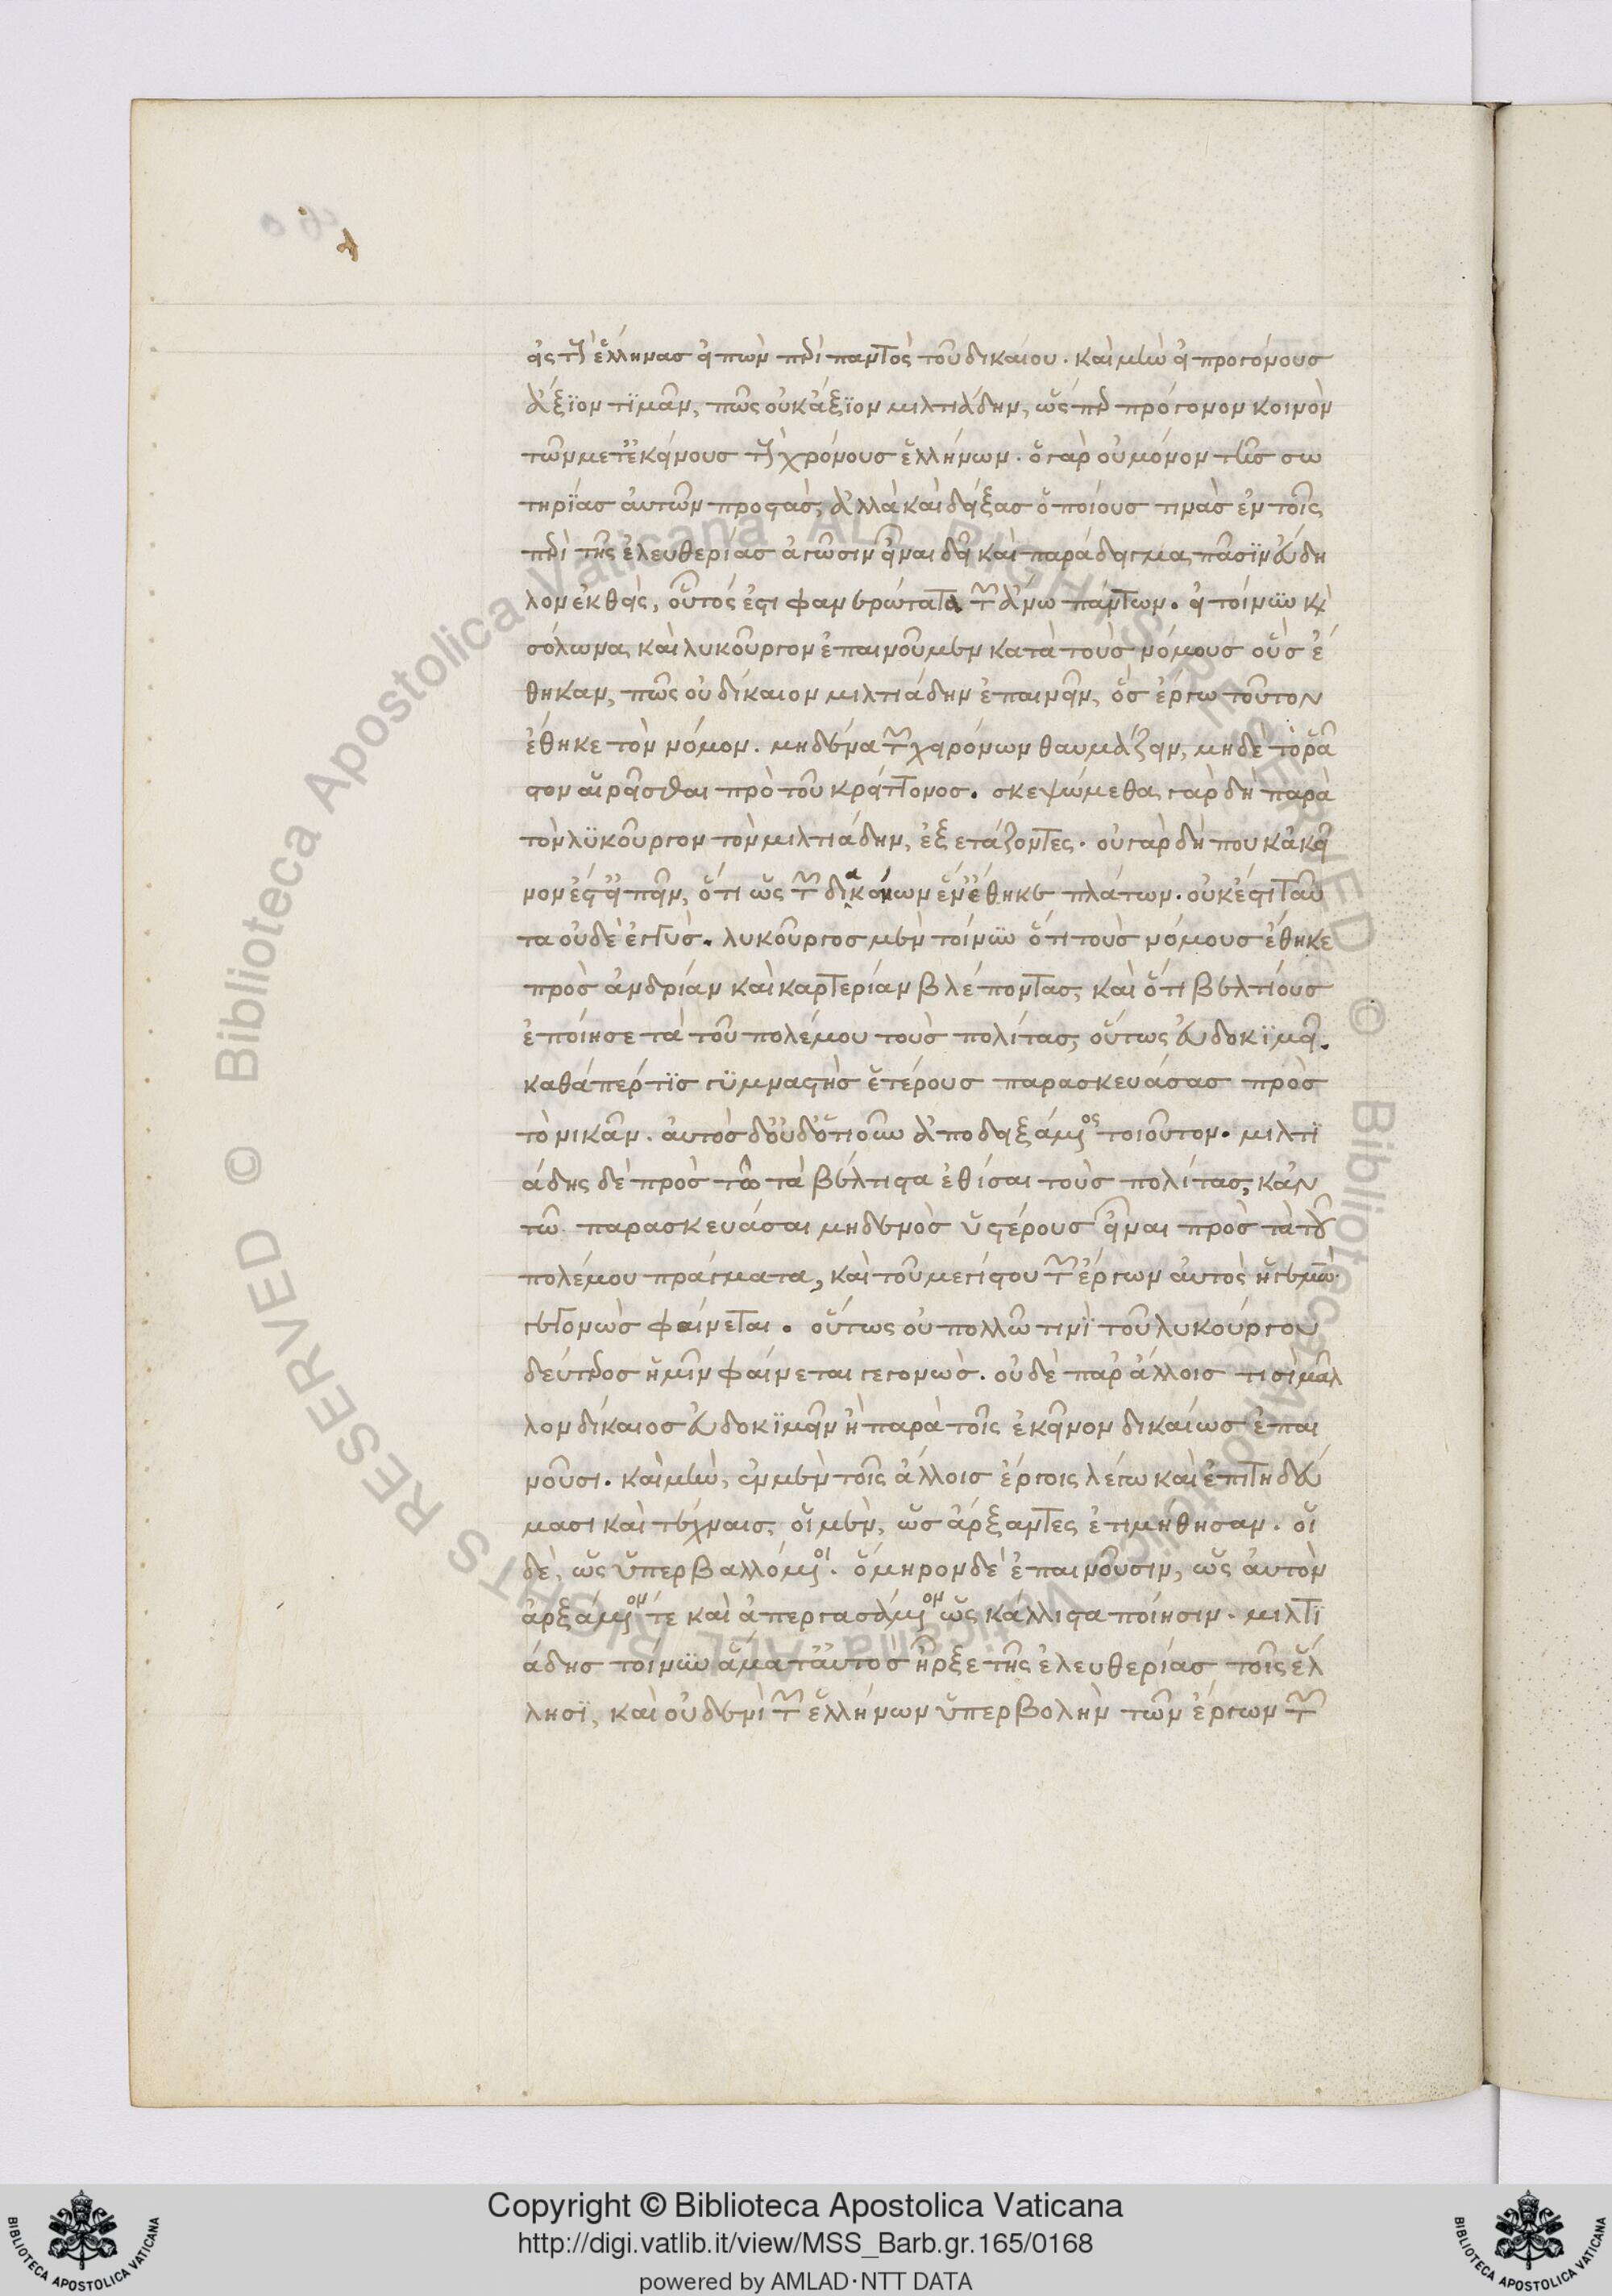 εἰς τοὺς ἕλληνας εἰπὼν περὶ παντὸς τοῦ δικαίου. καὶ μὴν εἰ προγόνους
ἄξϊον τϊμᾶν, πῶς οὐκ ἄξϊον μιλτιάδην, ὥσπερ πρόγονον κοινὸν
τῶν μετ' ἐκείνους τοὺς χρόνους ἑλλήνων. ὃ γὰρ οὐ μόνον τῆς σω
τηρϊας αὐτῶν προστὰς, ἀλλὰ καὶ δείξας ὁποίους τινὰς ἐν τοῖς
περὶ τῆς ἐλευθερίας ἀγῶσιν εἶναι δεῖ καὶ παράδειγμα πᾶσϊν εὔδη
λον ἐκθεὶς, οὗτός ἐστι φανερώτατα τῶν ἄνω πάντων. εἰ τοίνυν καὶ
σόλωνα καὶ λυκοῦργον ἐπαινοῦμεν κατὰ τοὺς νόμους οὓς ἔ
θηκαν, πῶς οὐ δίκαιον μιλτιάδην ἐπαινεῖν, ὃς ἔργω τοῦτον
ἔθηκε τὸν νόμον. μηδένα τῶν χειρόνων θαυμάζειν, μηδὲ τὸ ῥᾶ
στον αἱρεῖσθαι πρὸ τοῦ κρείττονος. σκεψώμεθα γὰρ δὴ παρὰ
τὸν λϋκοῦργον τὸν μιλτιάδην, ἐξετάζοντες. οὐ γὰρ δή που κἀκεῖ
νον ἔστ' εἰπεῖν, ὅτι ὡς τῶν διακόνων ἕν' ἔθηκε πλάτων. οὐκ ἔστι ταῦ
τα οὐδὲ ἐγγύς. λυκοῦργος μὲν τοίνυν ὅτι τοὺς νόμους ἔθηκε
πρὸς ἀνδρίαν καὶ καρτερίαν βλέποντας, καὶ ὅτι βελτίους
ἐποίησε τὰ τοῦ πολέμου τοὺς πολίτας, οὕτως εὐδοκϊμεῖ.
καθάπερ τϊς γϋμναστὴς ἑτέρους παρασκευάσας πρὸς
τὸ νικᾶν. αὐτὸς δ' οὐδ' ὁτιοῦν ἀποδειξάμενος τοιοῦτον. μιλτϊ
άδης δὲ πρὸς τῶ τὰ βέλτιστα ἐθίσαι τοὺς πολίτας, κἀν
τῶ παρασκευάσαι μηδενὸς ὑστέρους εἶναι πρὸς τὰ τοῦ
πολέμου πράγματα, καὶ τοῦ μεγίστου τῶν ἔργων αὐτὸς ἡγεμὼν
γεγονὼς φαίνεται. οὕτως οὐ πολλῶ τινὶ τοῦ λυκούργου
δεύτερος ἡμῖν φαίνεται γεγονώς. οὐδὲ παρ' ἄλλοις τισὶ μᾶλ
λον δίκαιος εὐδοκϊμεῖν ἢ παρὰ τοῖς ἐκεῖνον δικαίως ἐπαι
νοῦσι. καὶ μὴν, ἐν μὲν τοῖς ἄλλοις ἔργοις λέγω καὶ ἐπιτηδεύ
μασι καὶ τέχναις, οἱ μὲν, ὡς ἄρξαντες ἐτιμήθησαν. οἱ
δὲ, ὡς ὑπερβαλλόμενοι. ὅμηρον δὲ ἐπαινοῦσιν, ὡς αὐτὸν
ἀρξάμενόν τε καὶ ἀπεργασάμενον ὡς κάλλιστα ποίησιν. μιλτϊ
άδης τοίνυν ἅμα τ' αὐτὸς ἦρξε τῆς ἐλευθερίας τοῖς ἕλ
λησϊ, καὶ οὐδενὶ τῶν ἑλλήνων ὑπερβολὴν τῶν ἔργων τῶν
Copyright © Biblioteca Apostolica Vaticana
http://digi.vatlib.it/view/MSS_Barb.gr.165/0168
powered by AMLAD·NTT DATA